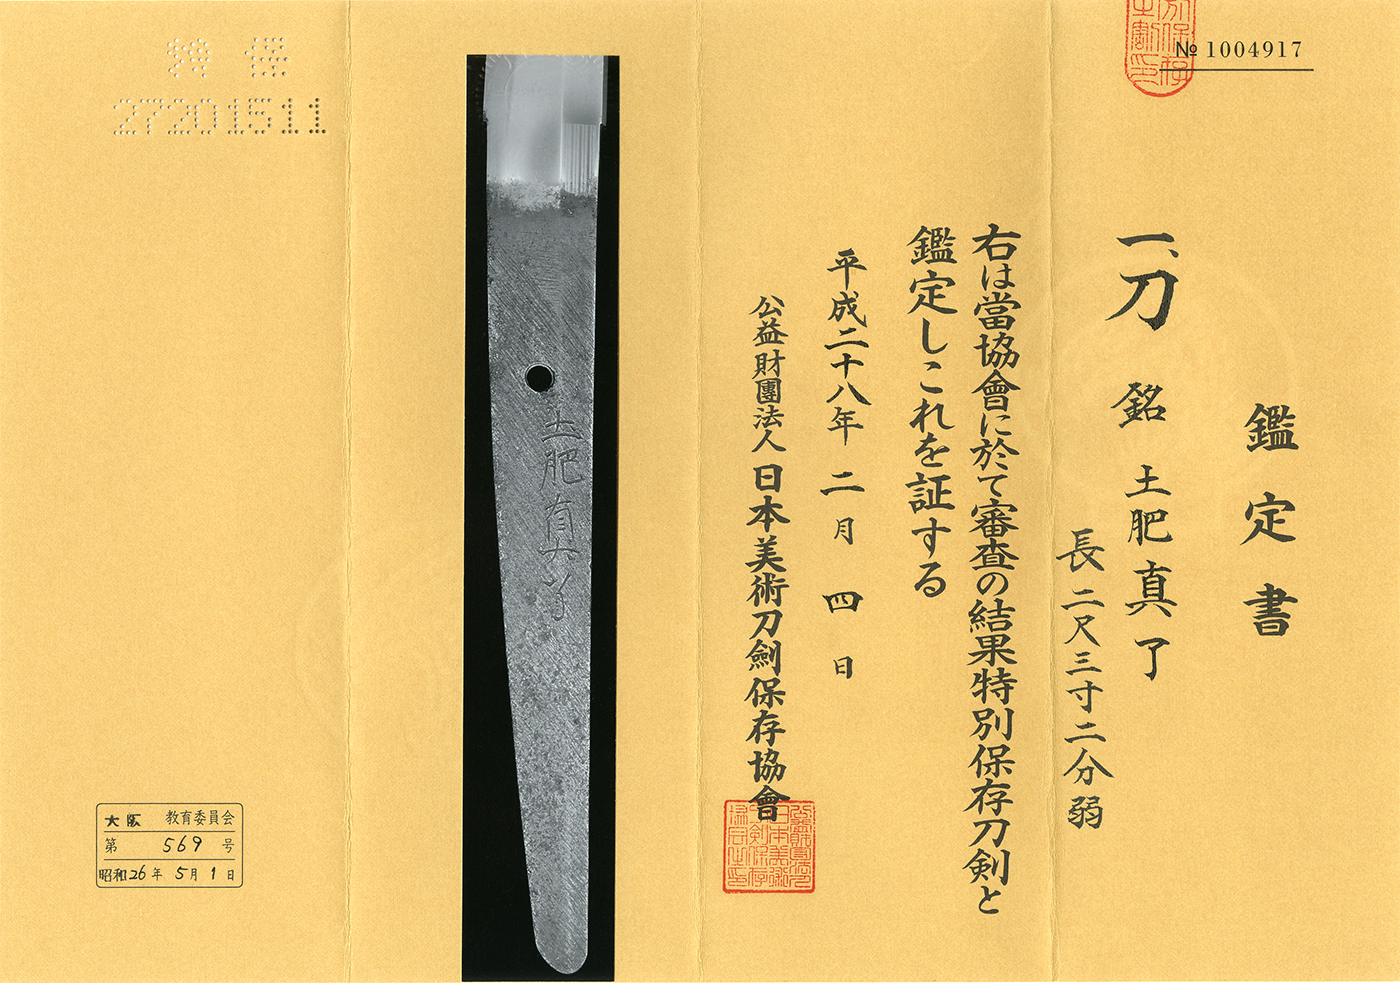 № 1004917
鑑定書
一、刀 銘 土肥真了
長 二尺三寸二分弱
右は當協會に於て審査の結果特別保存刀剣と
鑑定しこれを証する
平成二十八年 二月 四日
公益財團法人 日本美術刀劍保存協會
土肥真了
特保
27201511
大阪 教育委員会
第 569 号
昭和26年 5月 1日